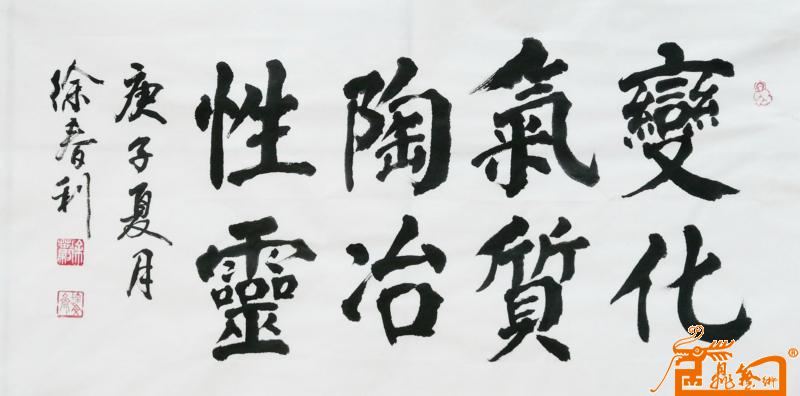 變化
氣質
陶冶
性靈
庚子夏月
徐春利